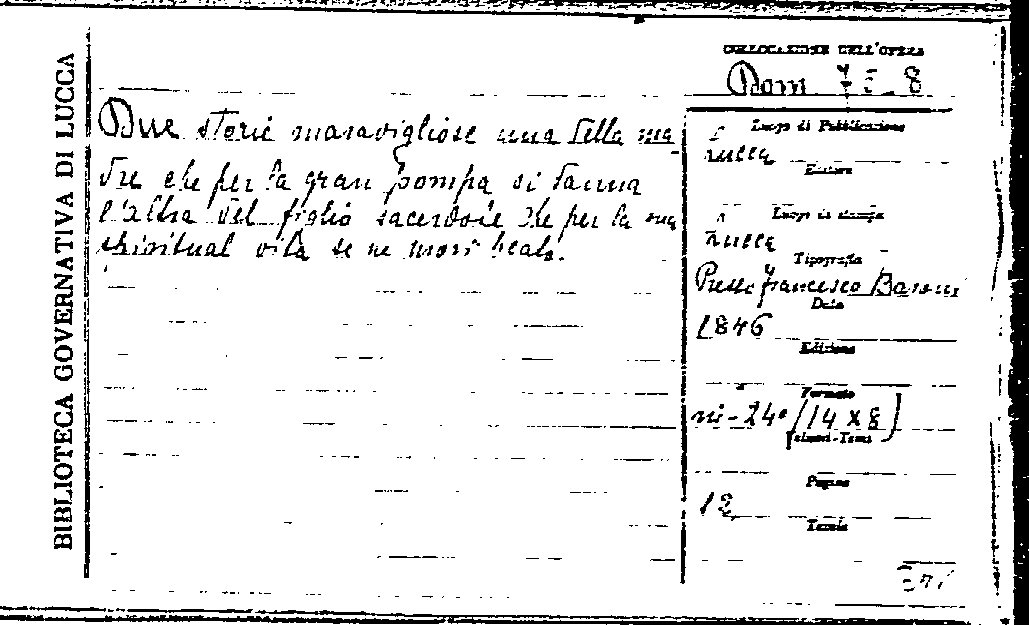 BIBLIOTECA GOVERNATIVA DI LUCCA
COLLOCAZIONE DELL'OPERA
Dom. 8
Due storie maravigliose una della ma
dre che per la gran pompa si danna
l'altra del figlio sacerdote che per la sua
spiritual vita se ne morì beato.
Luogo di Pubblicazione
Lucca
Editore
Luogo di stampa
Lucca
Tipografia
Presso Francesco Baroni
Data
1846
Edizione
Formato
in-24° (14 x 8)
Volumi-Tomi
Pagine
12
Tavole